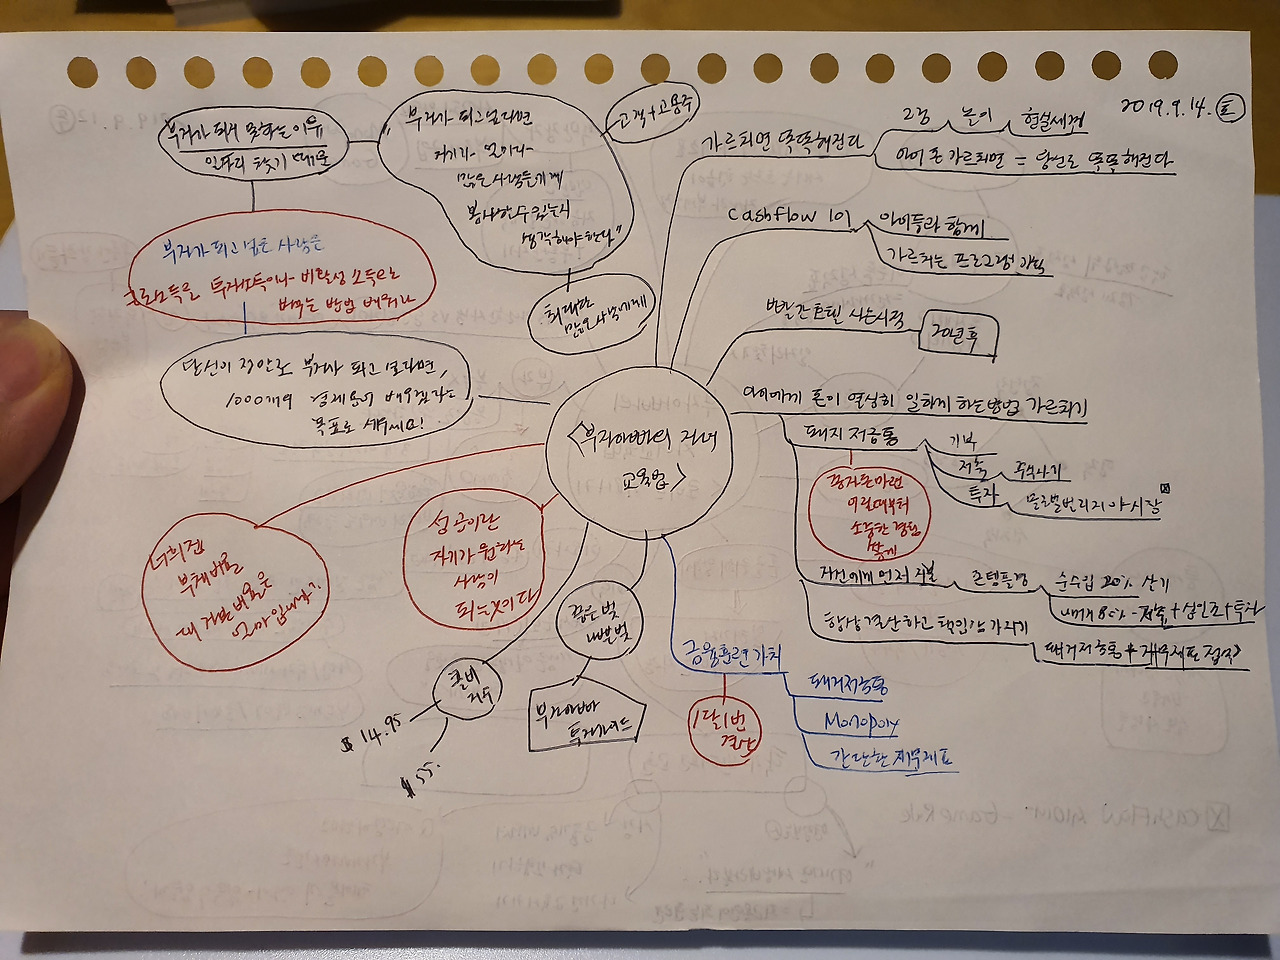 2019.9.14. (토)
부자가 되지 못하는 이유
일자리 찾기 때문
"부자가 되고 싶다면
자기가 얼마나
많은 사람들에게
봉사할 수 있는지
생각해야 한다"
고객+고용주
최대한
많은 사람에게
부자가 되고 싶은 사람은
근로소득을 투자소득이나 비활성 소득으로
바꾸는 방법 배워라
당신이 정말로 부자가 되고 싶다면,
1000개의 경제용어 배우겠다는
목표로 세우세요!
<부자아빠의 자녀
교육법>
가르치면 똑똑해진다
고등
놀이
현실세계
아이 돈 가르치면 = 당신도 똑똑해진다
Cashflow 101
아이들과 함께
가르치는 프로그램
빨간 호텔 사는시작
20년 후
아이에게 돈이 열심히 일하게 하는 방법 가르치기
돼지 저금통
기부
저축
주식사기
투자
종자돈 마련
어릴때부터
소중한 경험
쌓게
자신에게 먼저 지불
순수입 20% 살기
나머지 80% - 저축 + 십일조 + 투자
항상 결산하고 책임감 가지기
돼지저금통 + 재무제표 점수
너희젠
부채비율
내 가난 비율은
얼마입니까?
성공이란
자기가 원하는
사람이
되는 것이다
좋은 빚
나쁜 빚
부자아빠
투자가이드
콜비
지수
$ 14.95
$ 55.
금융훈련 가치
1달 1번
결산
돼지저금통
Monopoly
간단한 재무제표